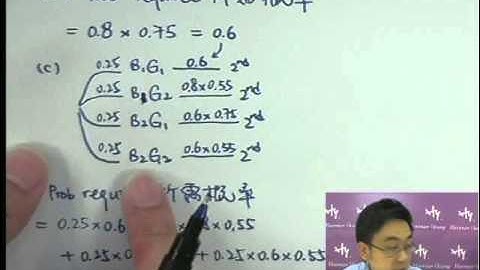 require 所需概率
= 0.8 × 0.75 = 0.6
(c)
0.25 B₁G₁ 0.6 2nd
0.25 B₁G₂ 0.8×0.55 2nd
0.25 B₂G₁ 0.6×0.75 2nd
0.25 B₂G₂ 0.6×0.55 2nd
Prob 所需概率
= 0.25×0.6 ×0.55
+ 0.25× + 0.25×0.6×0.55